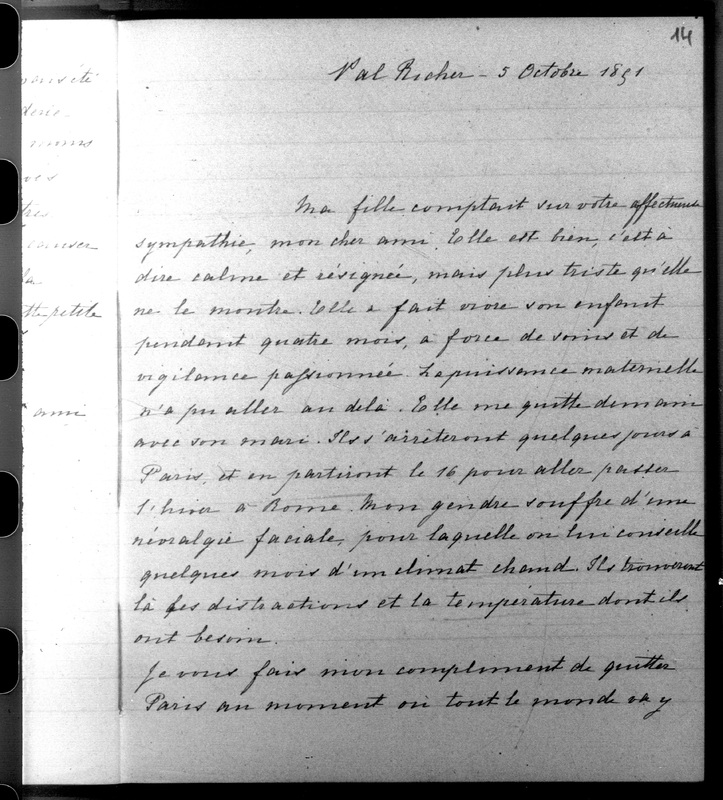 14
Val Richer - 5 Octobre 1851
Ma fille comptait sur votre affectueuse
sympathie, mon cher ami. Elle est bien, c'est à
dire calme et résignée, mais plus triste qu'elle
ne le montre. Elle a fait vivre son enfant
pendant quatre mois, à force de soins et de
vigilance passionnée. La puissance maternelle
n'a pu aller au delà. Elle me quitte demain
avec son mari. Ils s'arrêteront quelques jours à
Paris, et en partiront le 16 pour aller passer
l'hiver à Rome. Mon gendre souffre d'une
névralgie faciale, pour laquelle on lui conseille
quelques mois d'un climat chaud. Ils trouveront
là les distractions et la température dont ils
ont besoin.
Je vous fais mon compliment de quitter
Paris au moment où tout le monde va y
causer
la
petite
ami